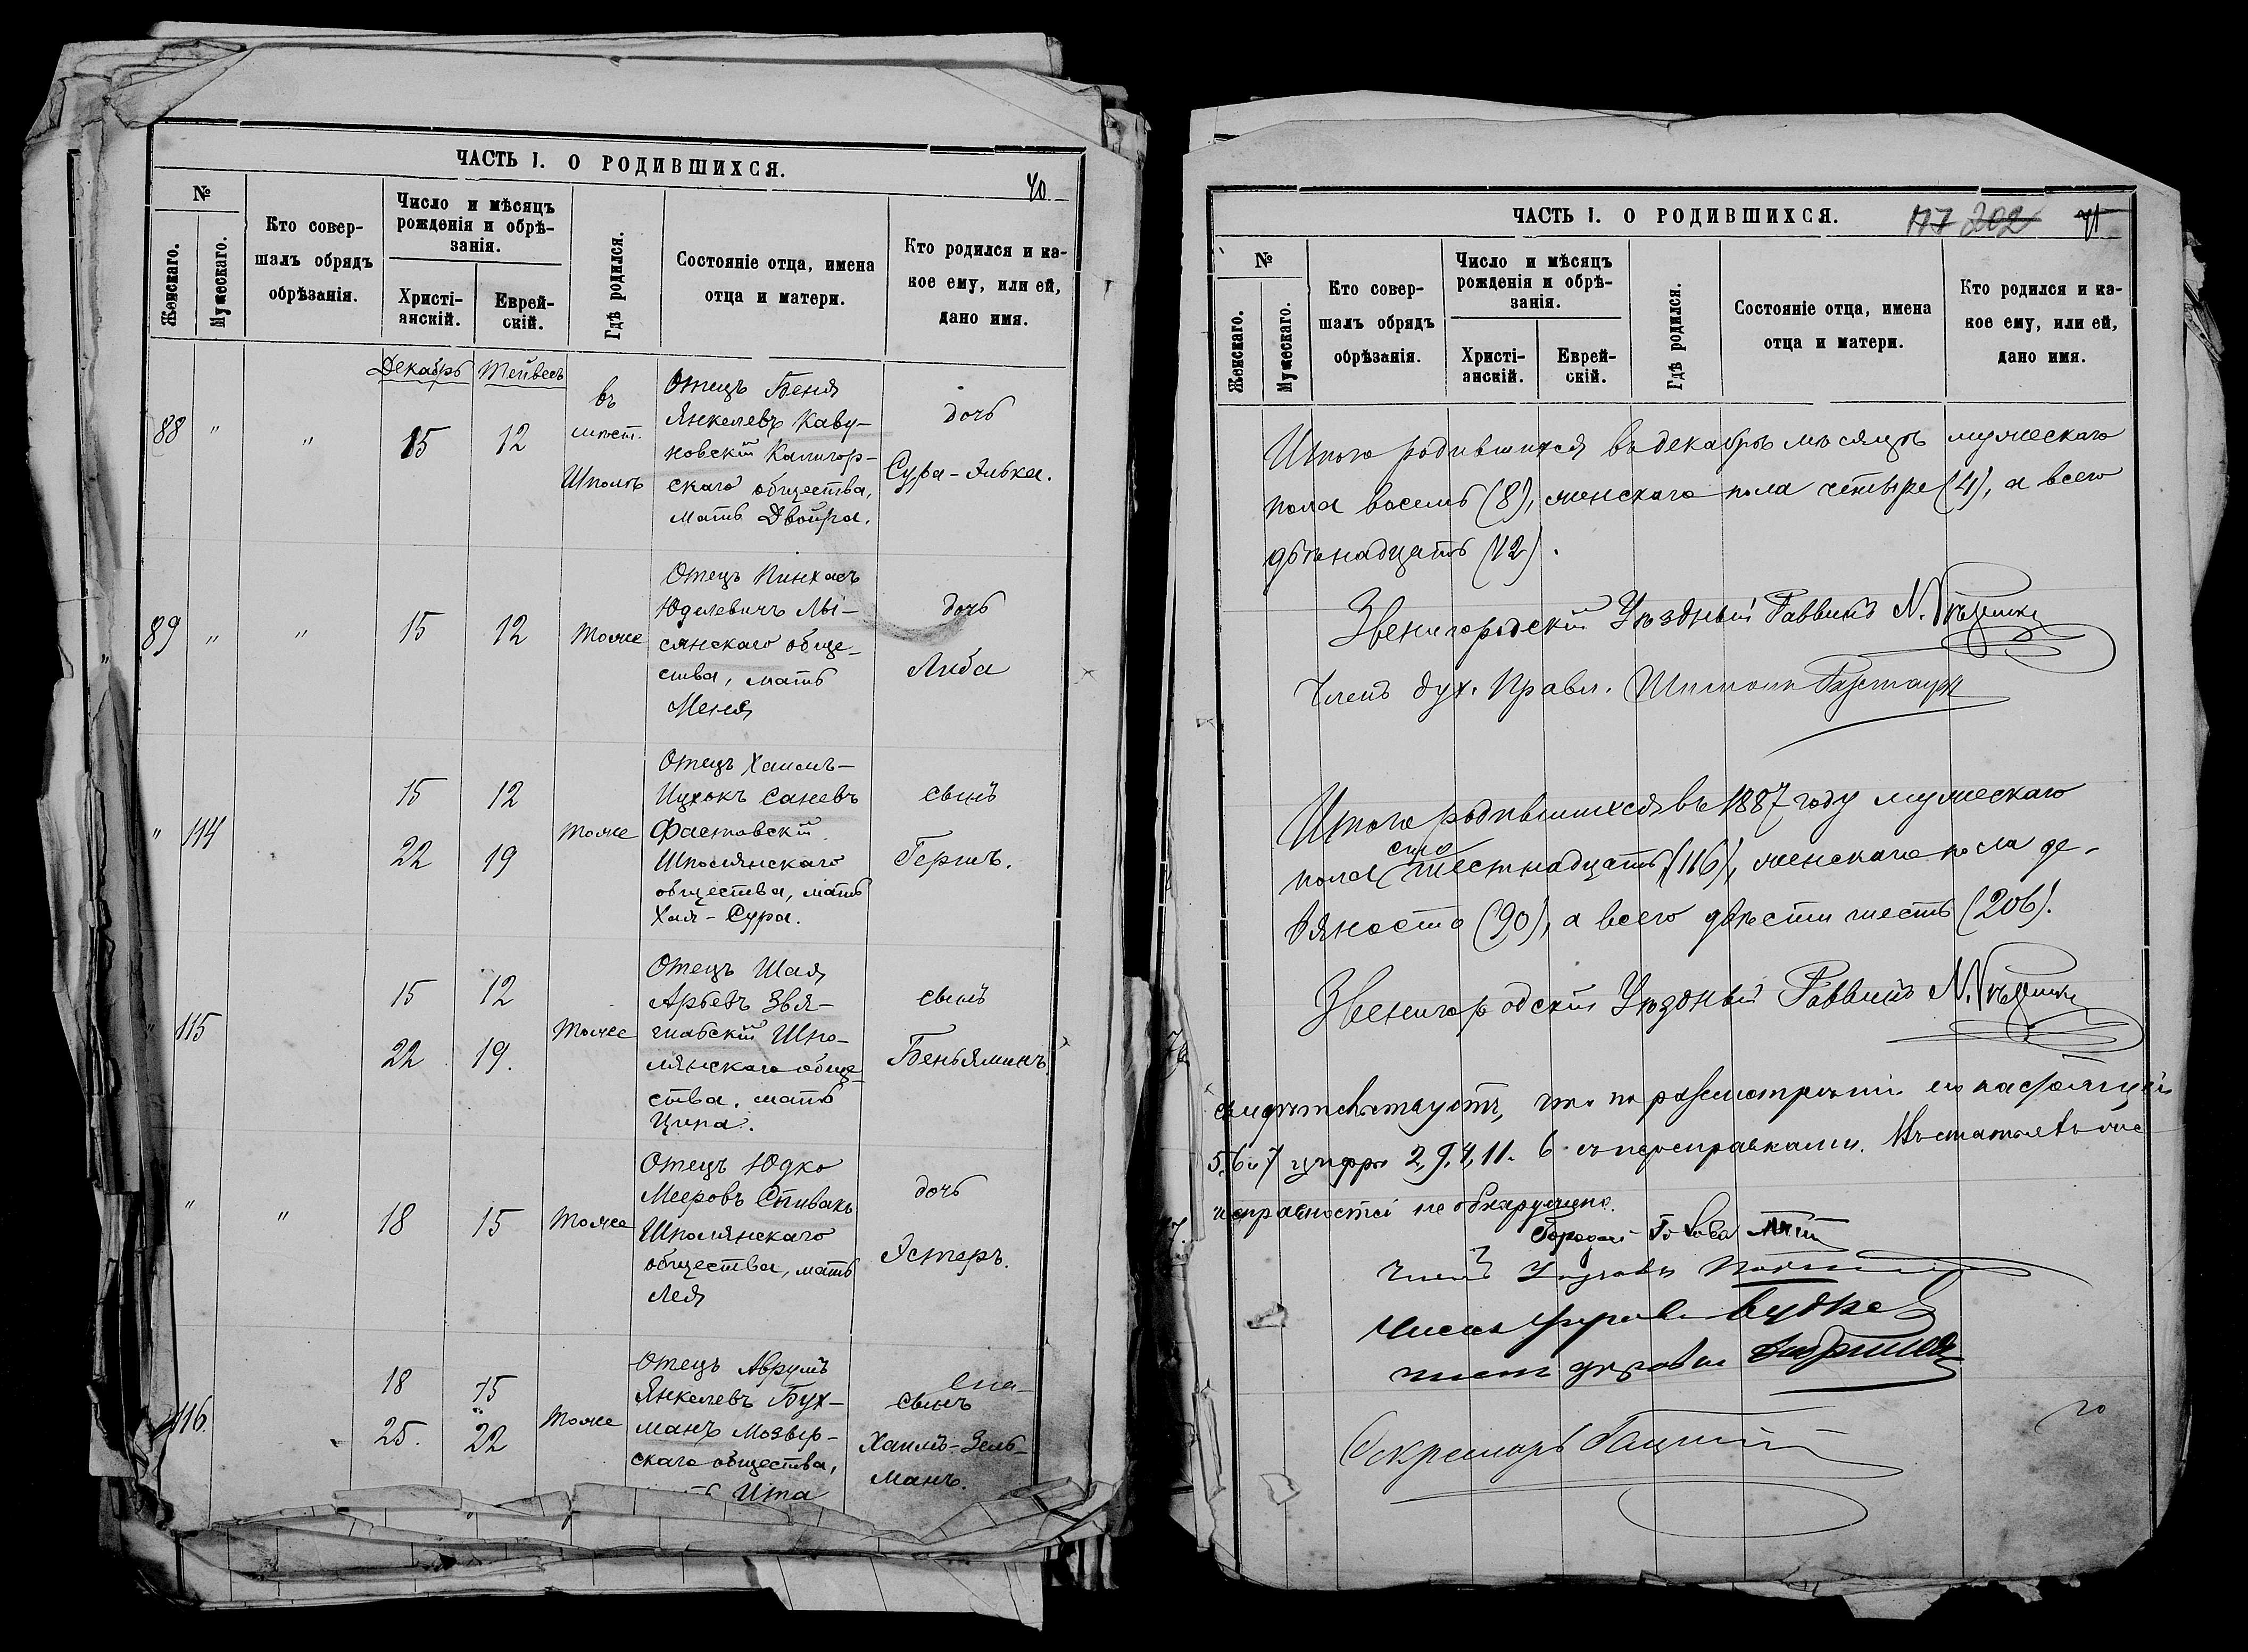 ЧАСТЬ I. О РОДИВШИХСЯ.
40
№
Женскаго.
Мужескаго.
Кто совер-
шалъ обрядъ
обрѣзанія.
Число и мѣсяцъ
рожденія и обрѣ-
занія.
Христі-
анскій.
Еврей-
скій.
Гдѣ родился.
Состояніе отца, имена
отца и матери.
Кто родился и ка-
кое ему, или ей,
дано имя.
Декабрь Тейвесъ
88 " " 15 12
въ
мѣст.
Шполѣ
Отецъ Беня
Янкелевъ Каву-
новскій Калигор-
скаго общества,
мать Двойра.
дочь
Сура-Элька.
89 " " 15 12 тоже
Отецъ Пинхасъ
Юделевичъ Лы-
сянскаго обще-
ства, мать
Меня
дочь
Либа
" 114
15 12
22 19
тоже
Отецъ Хаимъ-
Ицхокъ Саневъ
Фастовскій
Шполянскаго
общества, мать
Хая-Сура.
сынъ
Гершъ.
115
15 12
22 19.
тоже
Отецъ Шая
Арьевъ Звя-
гильскій Шпо-
лянскаго обще-
ства, мать
Ципа.
сынъ
Беньяминъ.
" " 18 15 тоже
Отецъ Юдко
Мееровъ Спивакъ
Шполянскаго
общества, мать
Лея
дочь
Эстеръ.
116.
18 15
25. 22
тоже
Отецъ Аврумъ
Янкелевъ Бух-
манъ Мозыр-
скаго общества,
Ита
сынъ
Хаимъ-Зель-
манъ.
ЧАСТЬ I. О РОДИВШИХСЯ.
117 202 41
№
Женскаго.
Мужескаго.
Кто совер-
шалъ обрядъ
обрѣзанія.
Число и мѣсяцъ
рожденія и обрѣ-
занія.
Христі-
анскій.
Еврей-
скій.
Гдѣ родился.
Состояніе отца, имена
отца и матери.
Кто родился и ка-
кое ему, или ей,
дано имя.
Итого родившихся въ декабрѣ мѣсяцѣ мужескаго
пола восемь (8), женскаго пола четыре (4), а всего
двѣнадцать (12).
Звенигородскій Уѣздный Раввинъ
Членъ дух. Правл.
Итого родившихся въ 1887 году мужескаго
сто
пола шестнадцать (116), женскаго пола де-
вяносто (90), а всего двѣсти шесть (206).
Звенигородскій Уѣздный Раввинъ
что по разсмотрѣніи
5, 6 и 7 цифры 2, 9, 4, 11. 6 съ переправками.
не обнаружено.
Голова
Членъ Управы
Членъ управы
Членъ управы
Секретарь